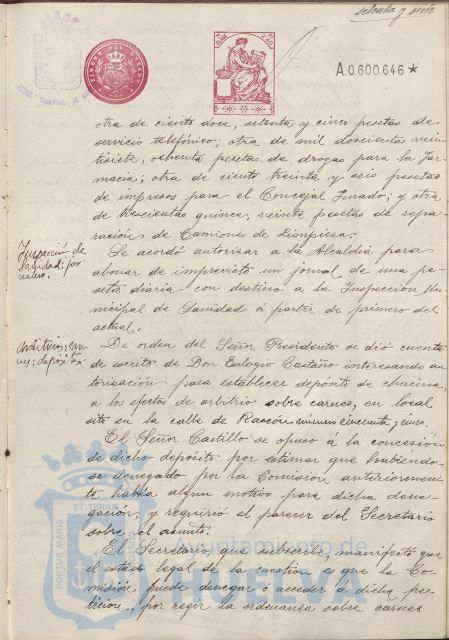 setenta y siete
A.0.600.646*
otra de ciento doce, setenta y cinco pesetas de
servicio telefónico; otra de mil doscientas vein
tisiete, ochenta pesetas de drogas para la Far
macia; otra de ciento treinta y seis pesetas
de impresos para el Concejal Jurado; y otra
de trescientas quince, veinte pesetas de repa
raciones de Camiones de Limpieza.
Inspección de
Sanidad; jor
nales.
Se acordó autorizar a la Alcaldía para
abonar de imprevisto un jornal de una pe
seta diaria con destino a la Inspección Mu
nicipal de Sanidad á partir de primero del
actual.
Arbitrios; car
nes; depósito
De orden del Señor Presidente se dió cuenta
de escrito de Don Eulogio Castaño interesando au
torización para establecer depósito de chacina,
a los efectos de arbitrio sobre carnes, en local
sito en la calle de Rascón número cincuenta y cinco.
El Señor Castillo se opuso á la concesión
de dicho depósito por estimar que habiéndo
se denegado por la Comisión anteriormen
te había algun motivo para dicha dene
gación; y requirió el parecer del Secretario
sobre el asunto.
El Secretario, que suscribe, manifestó que
el estado legal de la cuestion es que la Co
misión puede denegar ó acceder á dicha pe
ticion, por regir la ordenanza sobre carnes
Ayuntamiento de
HUELVA